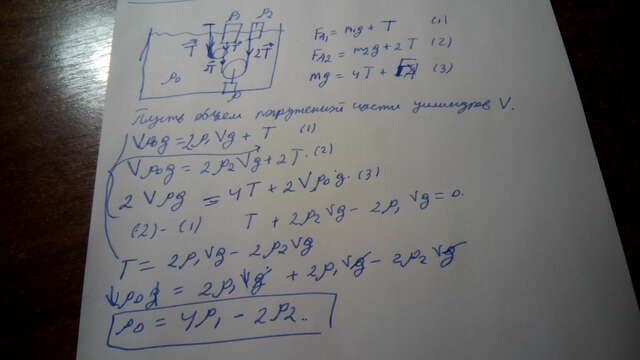 T ρ1 ρ2
T T 2T
2T
ρ0
ρ
FA1 = mg + T (1)
FA2 = m2g + 2T (2)
mg = 4T + (3)
Пусть объем погруженной части цилиндров V.
Vρ0g = 2ρ1Vg + T (1)
Vρ0g = 2ρ2Vg + 2T. (2)
2Vρg = 4T + 2Vρ0g. (3)
(2) - (1) T + 2ρ2Vg - 2ρ1Vg = 0.
T = 2ρ1Vg - 2ρ2Vg
Vρ0g = 2ρ1Vg + 2ρ1Vg - 2ρ2Vg
ρ0 = 4ρ1 - 2ρ2.